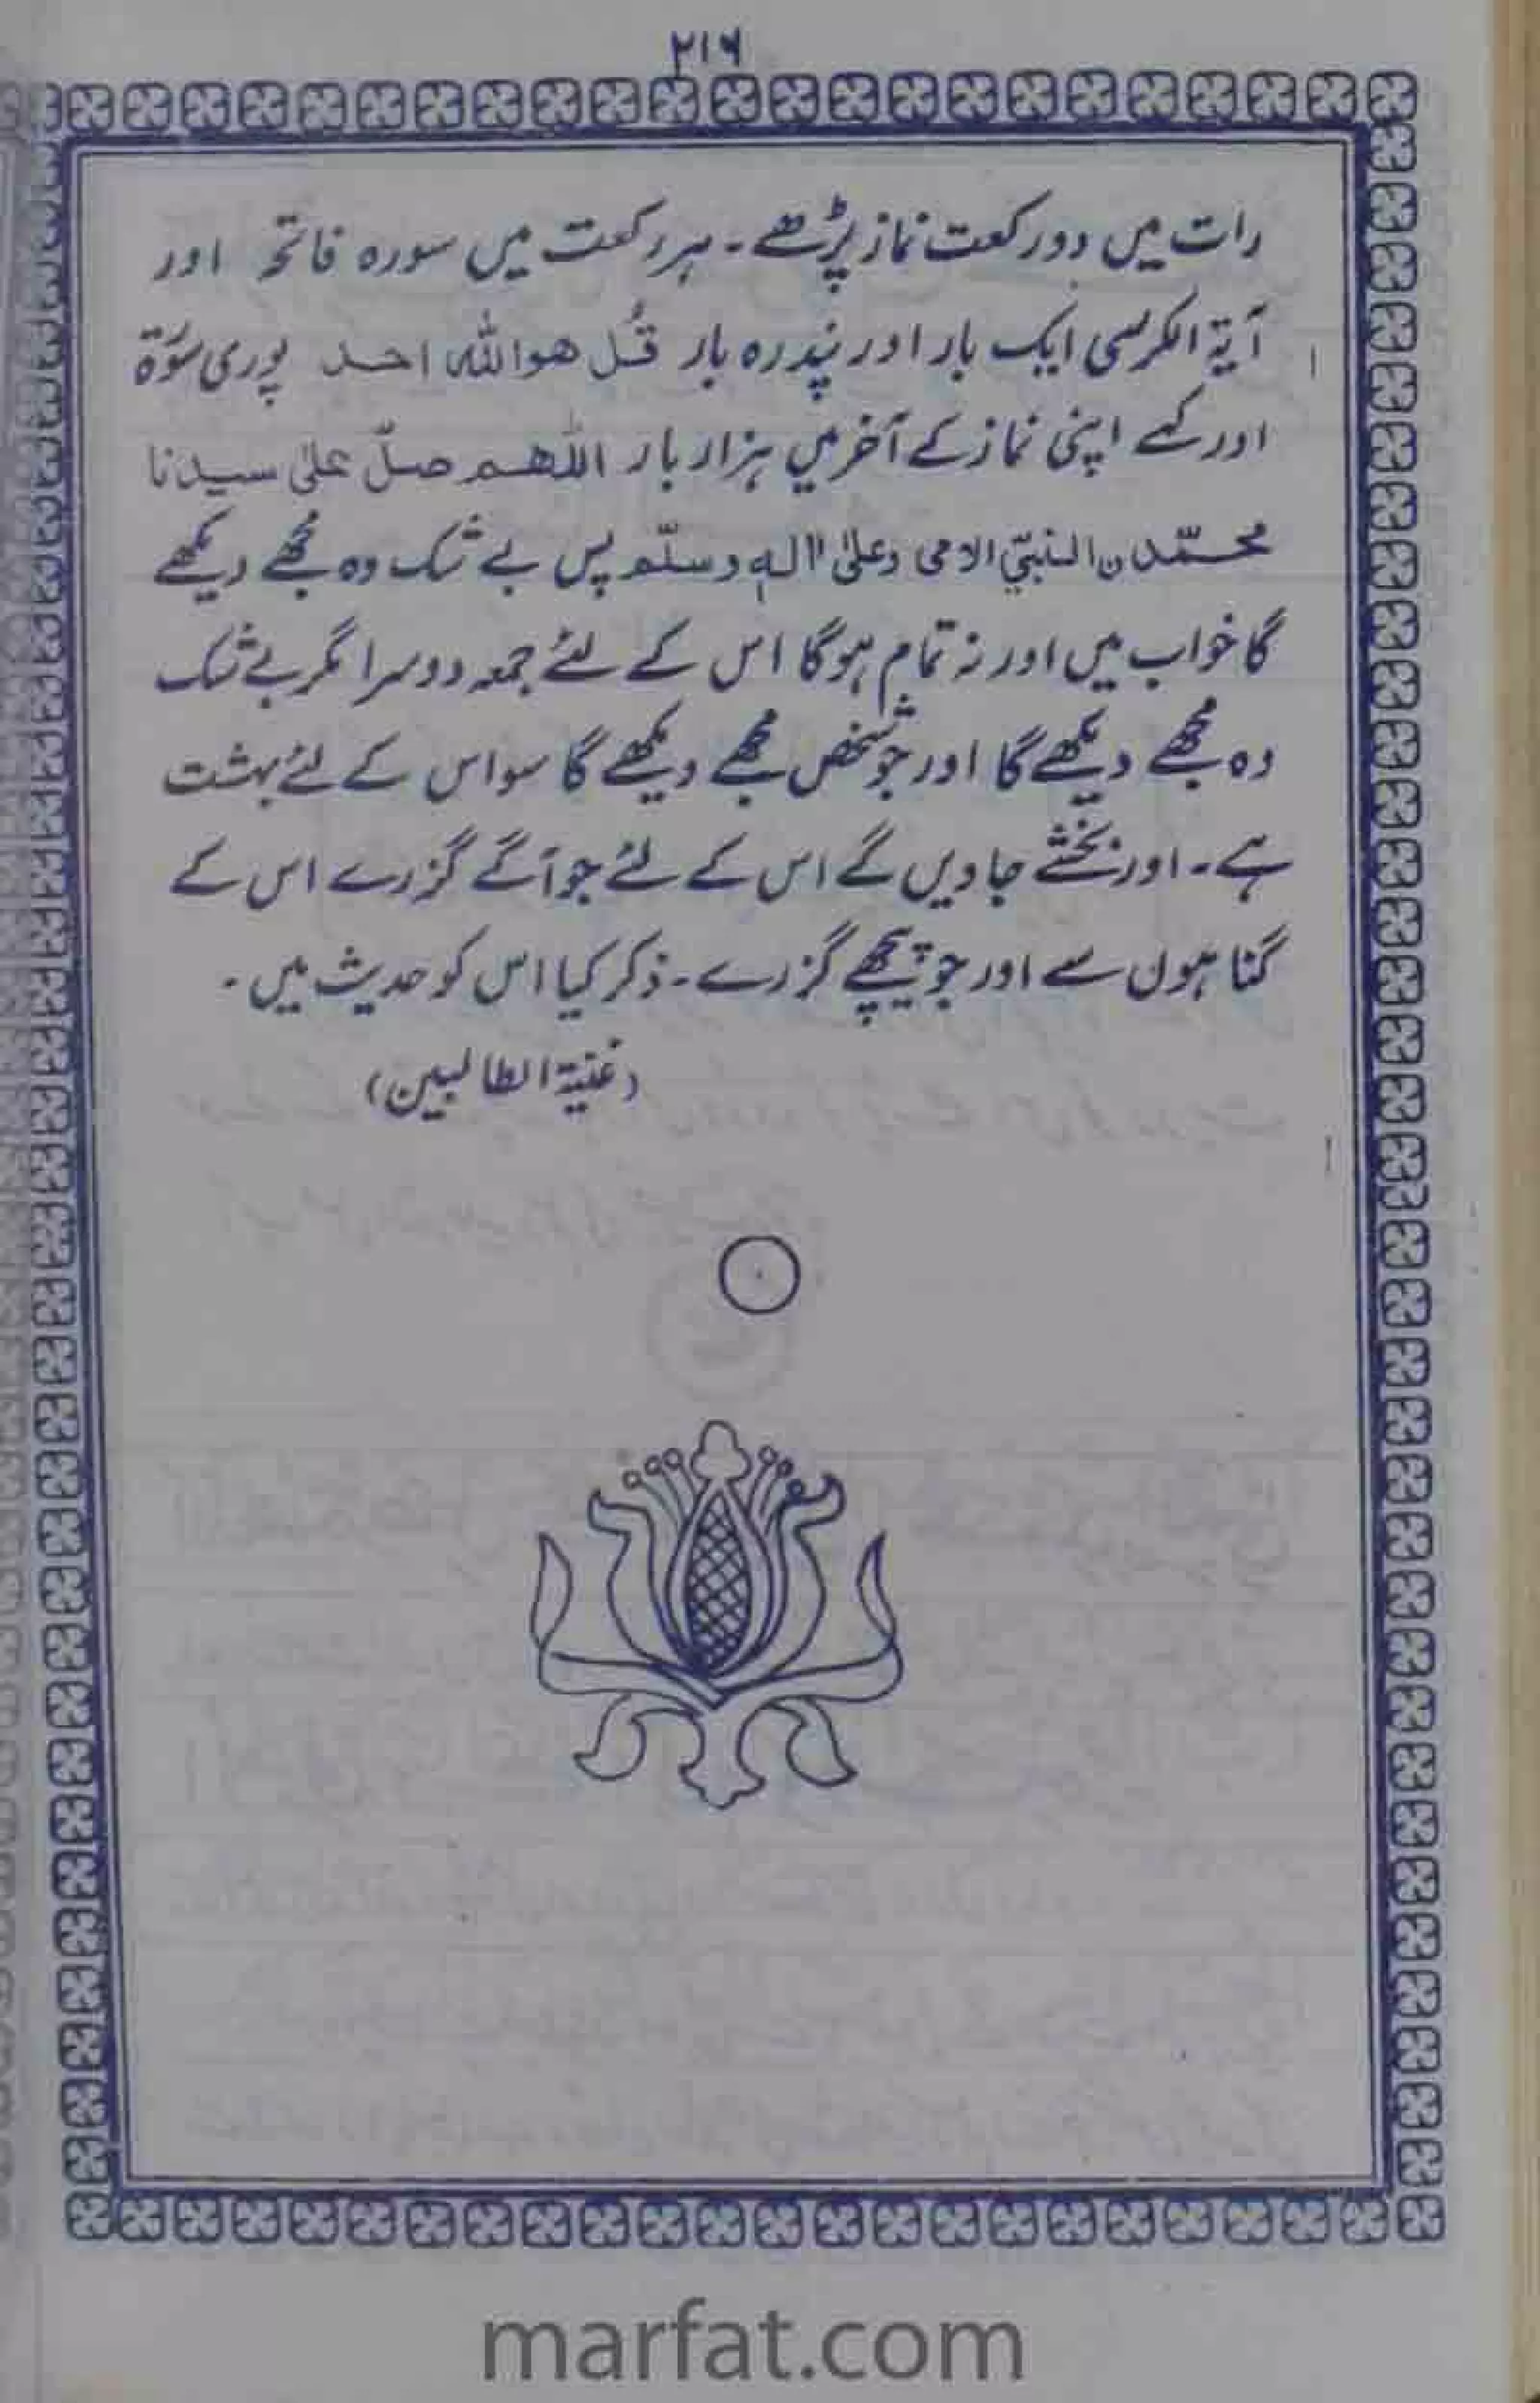 ۲۱۶
رات میں دو رکعت نماز پڑھے۔ ہر رکعت میں سورہ فاتحہ اور
آیۃ الکرسی ایک بار اور پندرہ بار قُل ھو اللہ احد پوری سوَرۃ
اور کہے اپنی نماز کے آخر میں ہزار بار اللھم صلّ علیٰ سیدنا
محمّد ن النبیّ الامی وعلیٰ اٰلہٖ وسلّم پس بے شک وہ مجھے دیکھے
گا خواب میں اور نہ تمام ہوگا اس کے لئے جمعہ دوسرا مگر بے شک
وہ مجھے دیکھے گا اور جو شخص مجھے دیکھے گا سو اس کے لئے بہشت
ہے۔ اور بخشے جاویں گے اس کے لئے جو آگے گزرے اس کے
گناہوں سے اور جو پیچھے گزرے۔ ذکر کیا اس کو حدیث میں۔
(غنیۃ الطالبین)
marfat.com